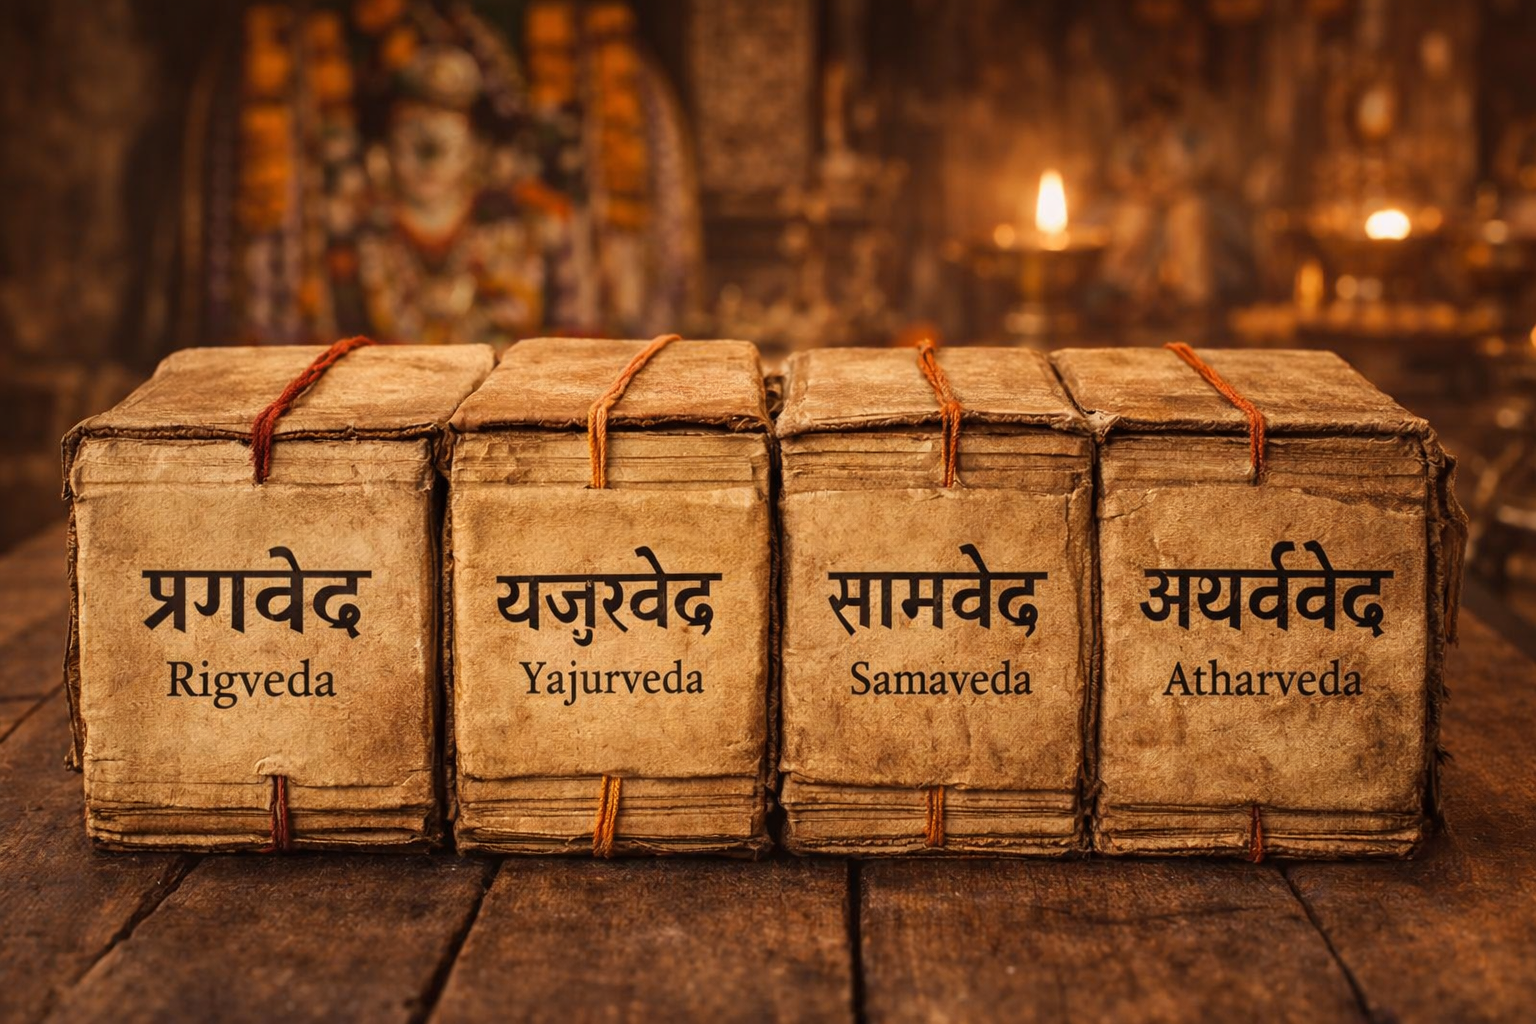 प्रगवेद
Rigveda
यजुरवेद
Yajurveda
सामवेद
Samaveda
अथर्ववेद
Atharveda